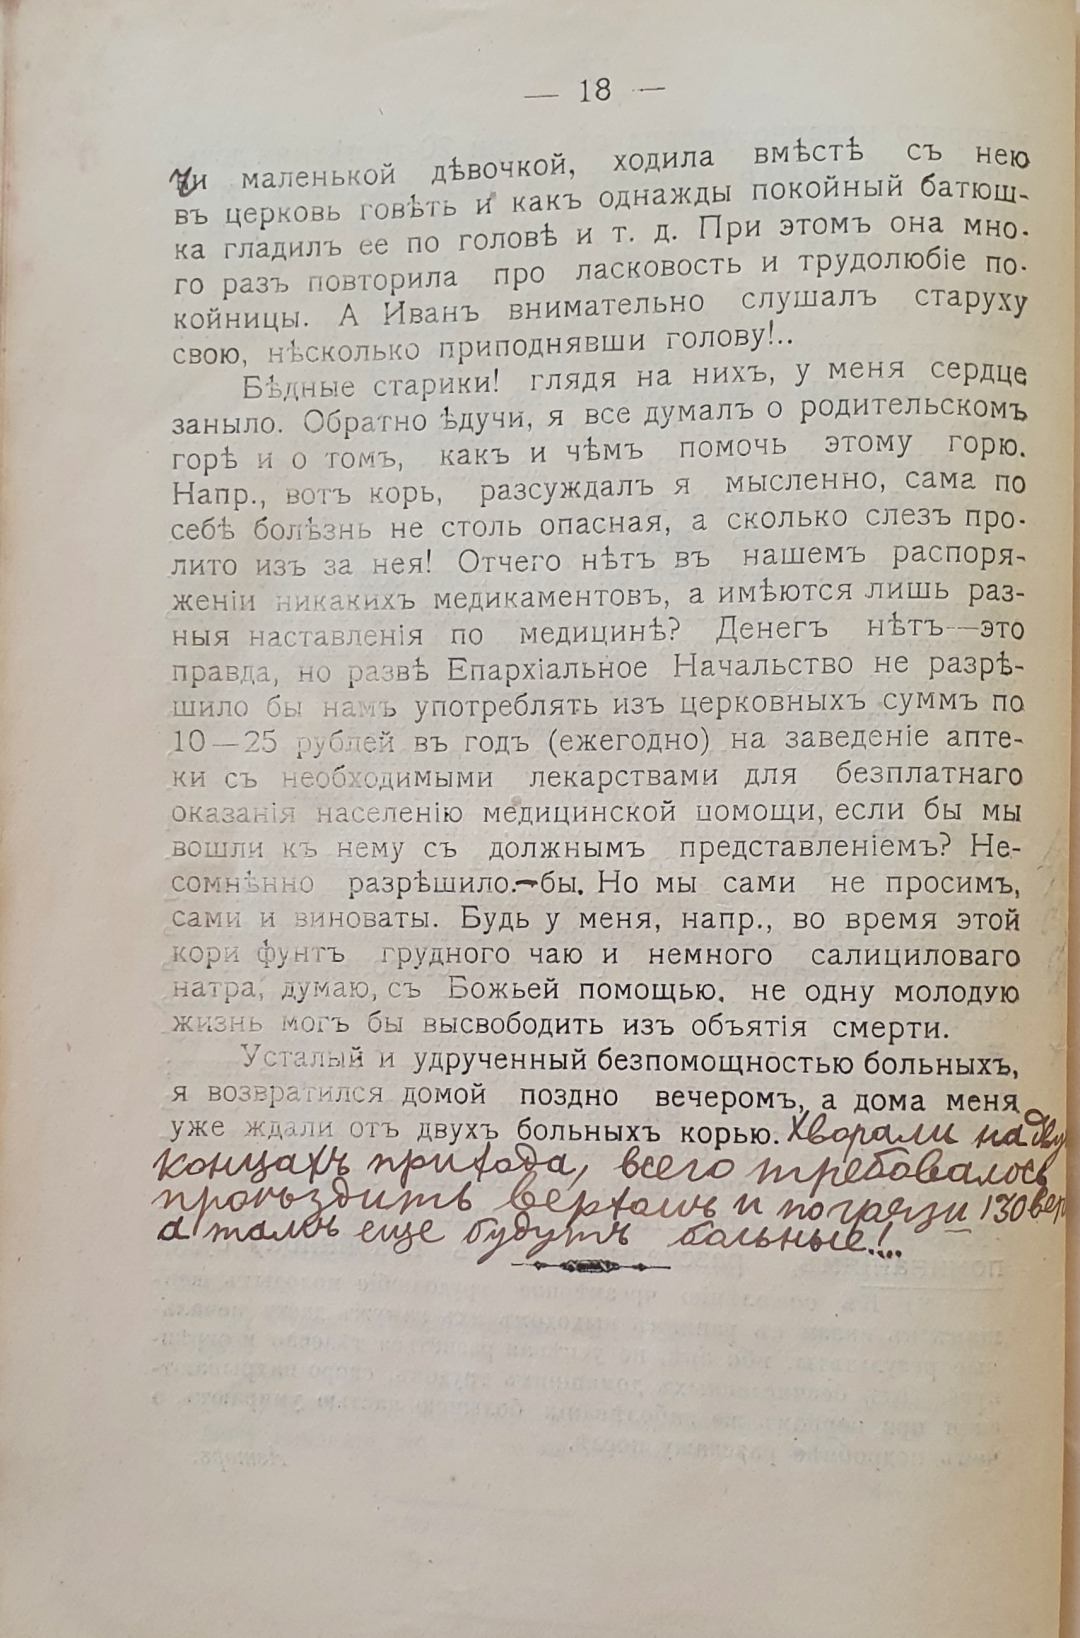 — 18 —
чи маленькой дѣвочкой, ходила вмѣстѣ съ нею
въ церковь говѣть и какъ однажды покойный батюш-
ка гладилъ ее по головѣ и т. д. При этомъ она мно-
го разъ повторила про ласковость и трудолюбіе по-
койницы. А Иванъ внимательно слушалъ старуху
свою, нѣсколько приподнявши голову!..
Бѣдные старики! глядя на нихъ, у меня сердце
заныло. Обратно ѣдучи, я все думалъ о родительскомъ
горѣ и о томъ, какъ и чѣмъ помочь этому горю.
Напр., вотъ корь, разсуждалъ я мысленно, сама по
себѣ болѣзнь не столь опасная, а сколько слезъ про-
лито изъ за нея! Отчего нѣтъ въ нашемъ распоря-
женіи никакихъ медикаментовъ, а имѣются лишь раз-
ныя наставленія по медицинѣ? Денегъ нѣтъ—это
правда, но развѣ Епархіальное Начальство не разрѣ-
шило бы намъ употреблять изъ церковныхъ суммъ по
10—25 рублей въ годъ (ежегодно) на заведеніе апте-
ки съ необходимыми лекарствами для безплатнаго
оказанія населенію медицинской помощи, если бы мы
вошли къ нему съ должнымъ представленіемъ? Не-
сомнѣнно разрѣшило.—бы. Но мы сами не просимъ,
сами и виноваты. Будь у меня, напр., во время этой
кори фунтъ грудного чаю и немного салициловаго
натра, думаю, съ Божьей помощью, не одну молодую
жизнь могъ бы высвободить изъ объятія смерти.
Усталый и удрученный безпомощностью больныхъ,
я возвратился домой поздно вечеромъ, а дома меня
уже ждали отъ двухъ больныхъ корью. Хворали на двух
концахъ прихода, всего требовалось
проѣздить верхомъ и по грязи 130 вер
а тамъ еще будутъ больные!...